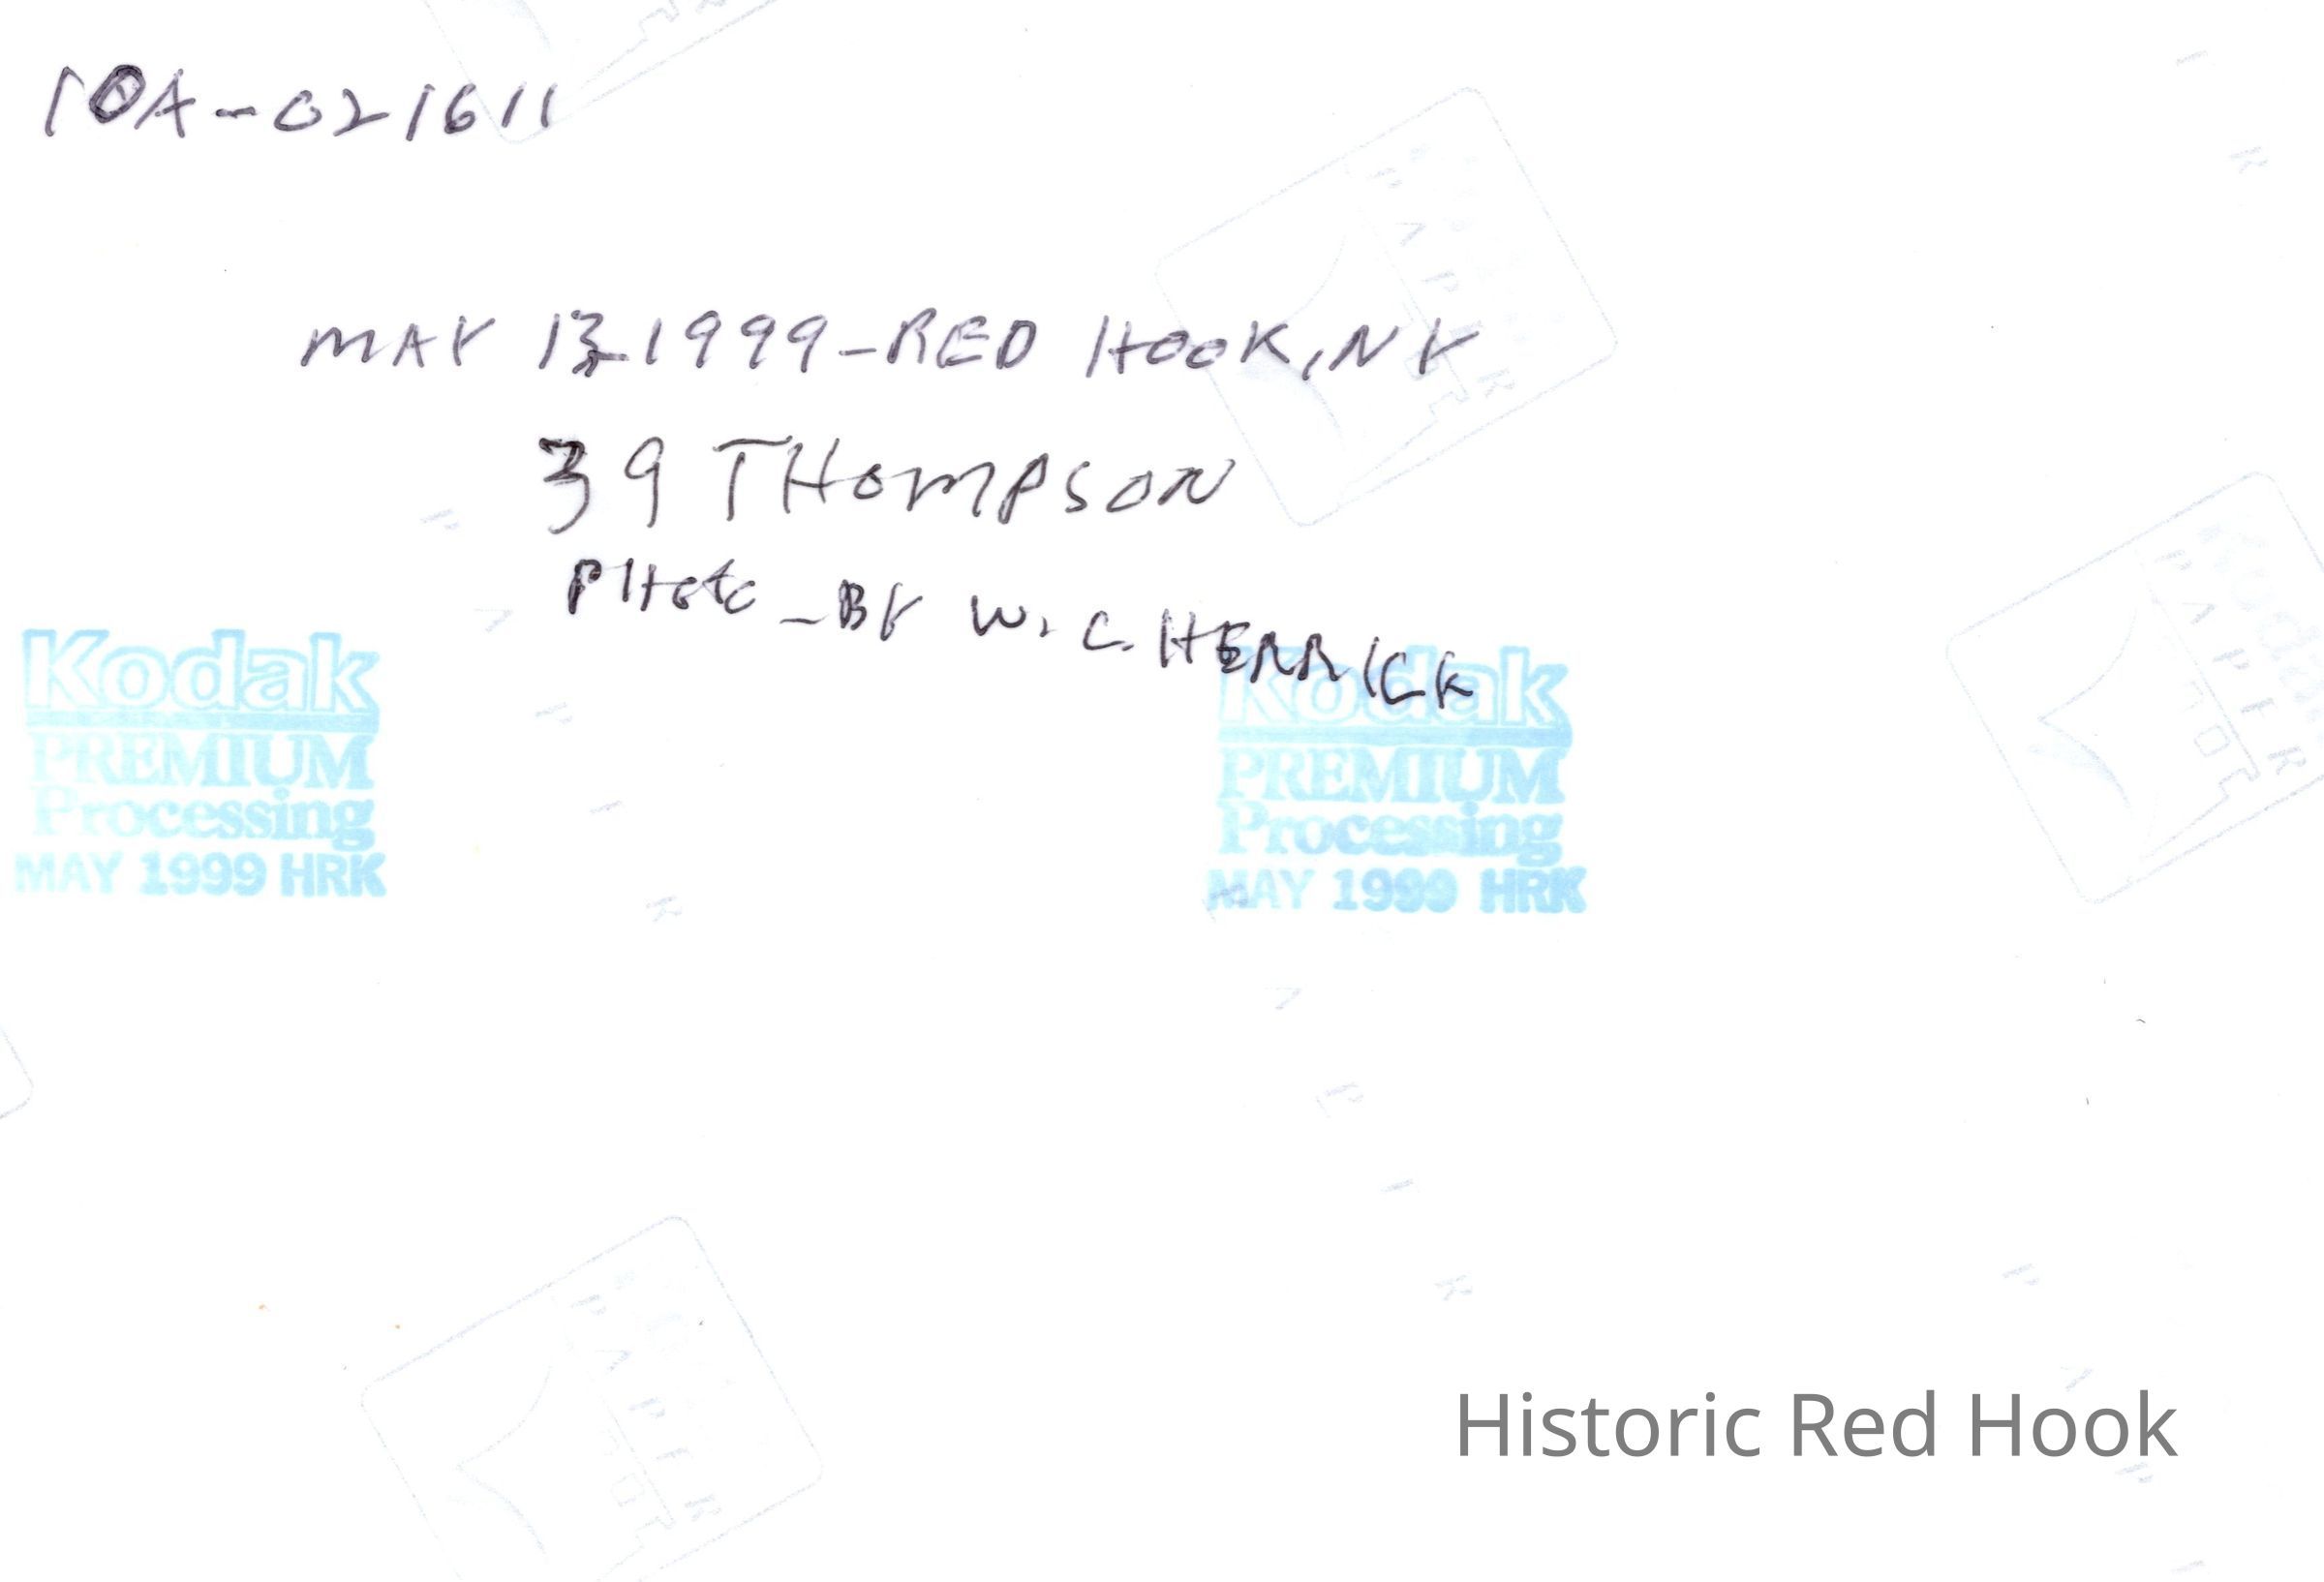 10A-021611
MAY 13-1999-RED HOOK, NY
39 THOMPSON
PHOTO-BY W. C. HERRICK
Kodak
PREMIUM
Processing
MAY 1999 HRK
Kodak
PREMIUM
Processing
MAY 1999 HRK
Historic Red Hook